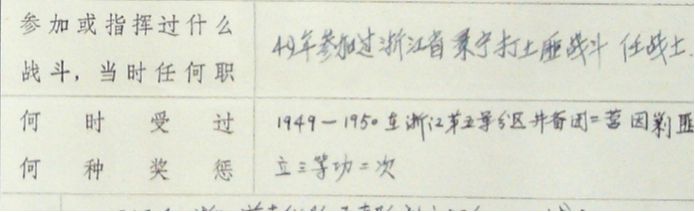 参加或指挥过什么
战斗，当时任何职
49年参加过浙江省 宁打土匪战斗 任战士.
何时受过
何种奖惩
1949－1950在浙江第五军分区 备团二营因剿匪
立三等功二次